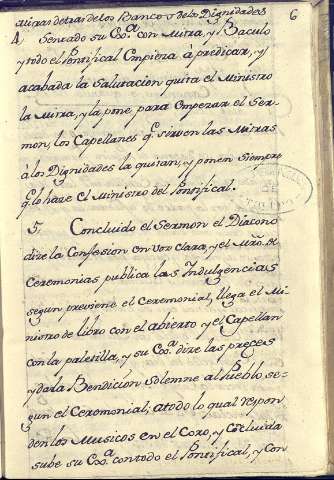 6
Mitras detras de los Bancos de las Dignidades
4. Sentado su Exª. con Mitra, y Baculo
y todo el Pontifical Empieza à predicar, y
acabada la Salutacion quita el Ministro
la Mitra, y la pone para Empezar el Ser-
mon, los Capellanes qe. sirven las Mitras
à los Dignidades la quitan, y ponen siempre
qe. lo hace el Ministro del Pontifical.
5. Concluido el Sermon el Diacono
dize la Confesion en voz clara, y el Mrô. de
Ceremonias publica las Indulgencias
segun previene el Ceremonial, llega el Mi-
nistro de libro con el abierto y el Capellan
con la paletilla, y su Exª. dize las preces
y da la Bendicion solemne al Pueblo se-
gun el Ceremonial, a todo lo qual respon-
den los Musicos en el Coro, y Concluida
sube su Exª. con todo el Pontifical, y con